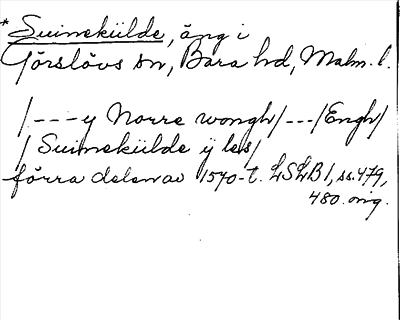 *Suinekülde, äng i
Görslövs sn, Bara hd, Malm. l.
/---y Norre wongh/---/Engh/
/ Suinekülde ÿ les/
förra delen av 1570-t. LSLB 1, ss. 479,
480. orig.